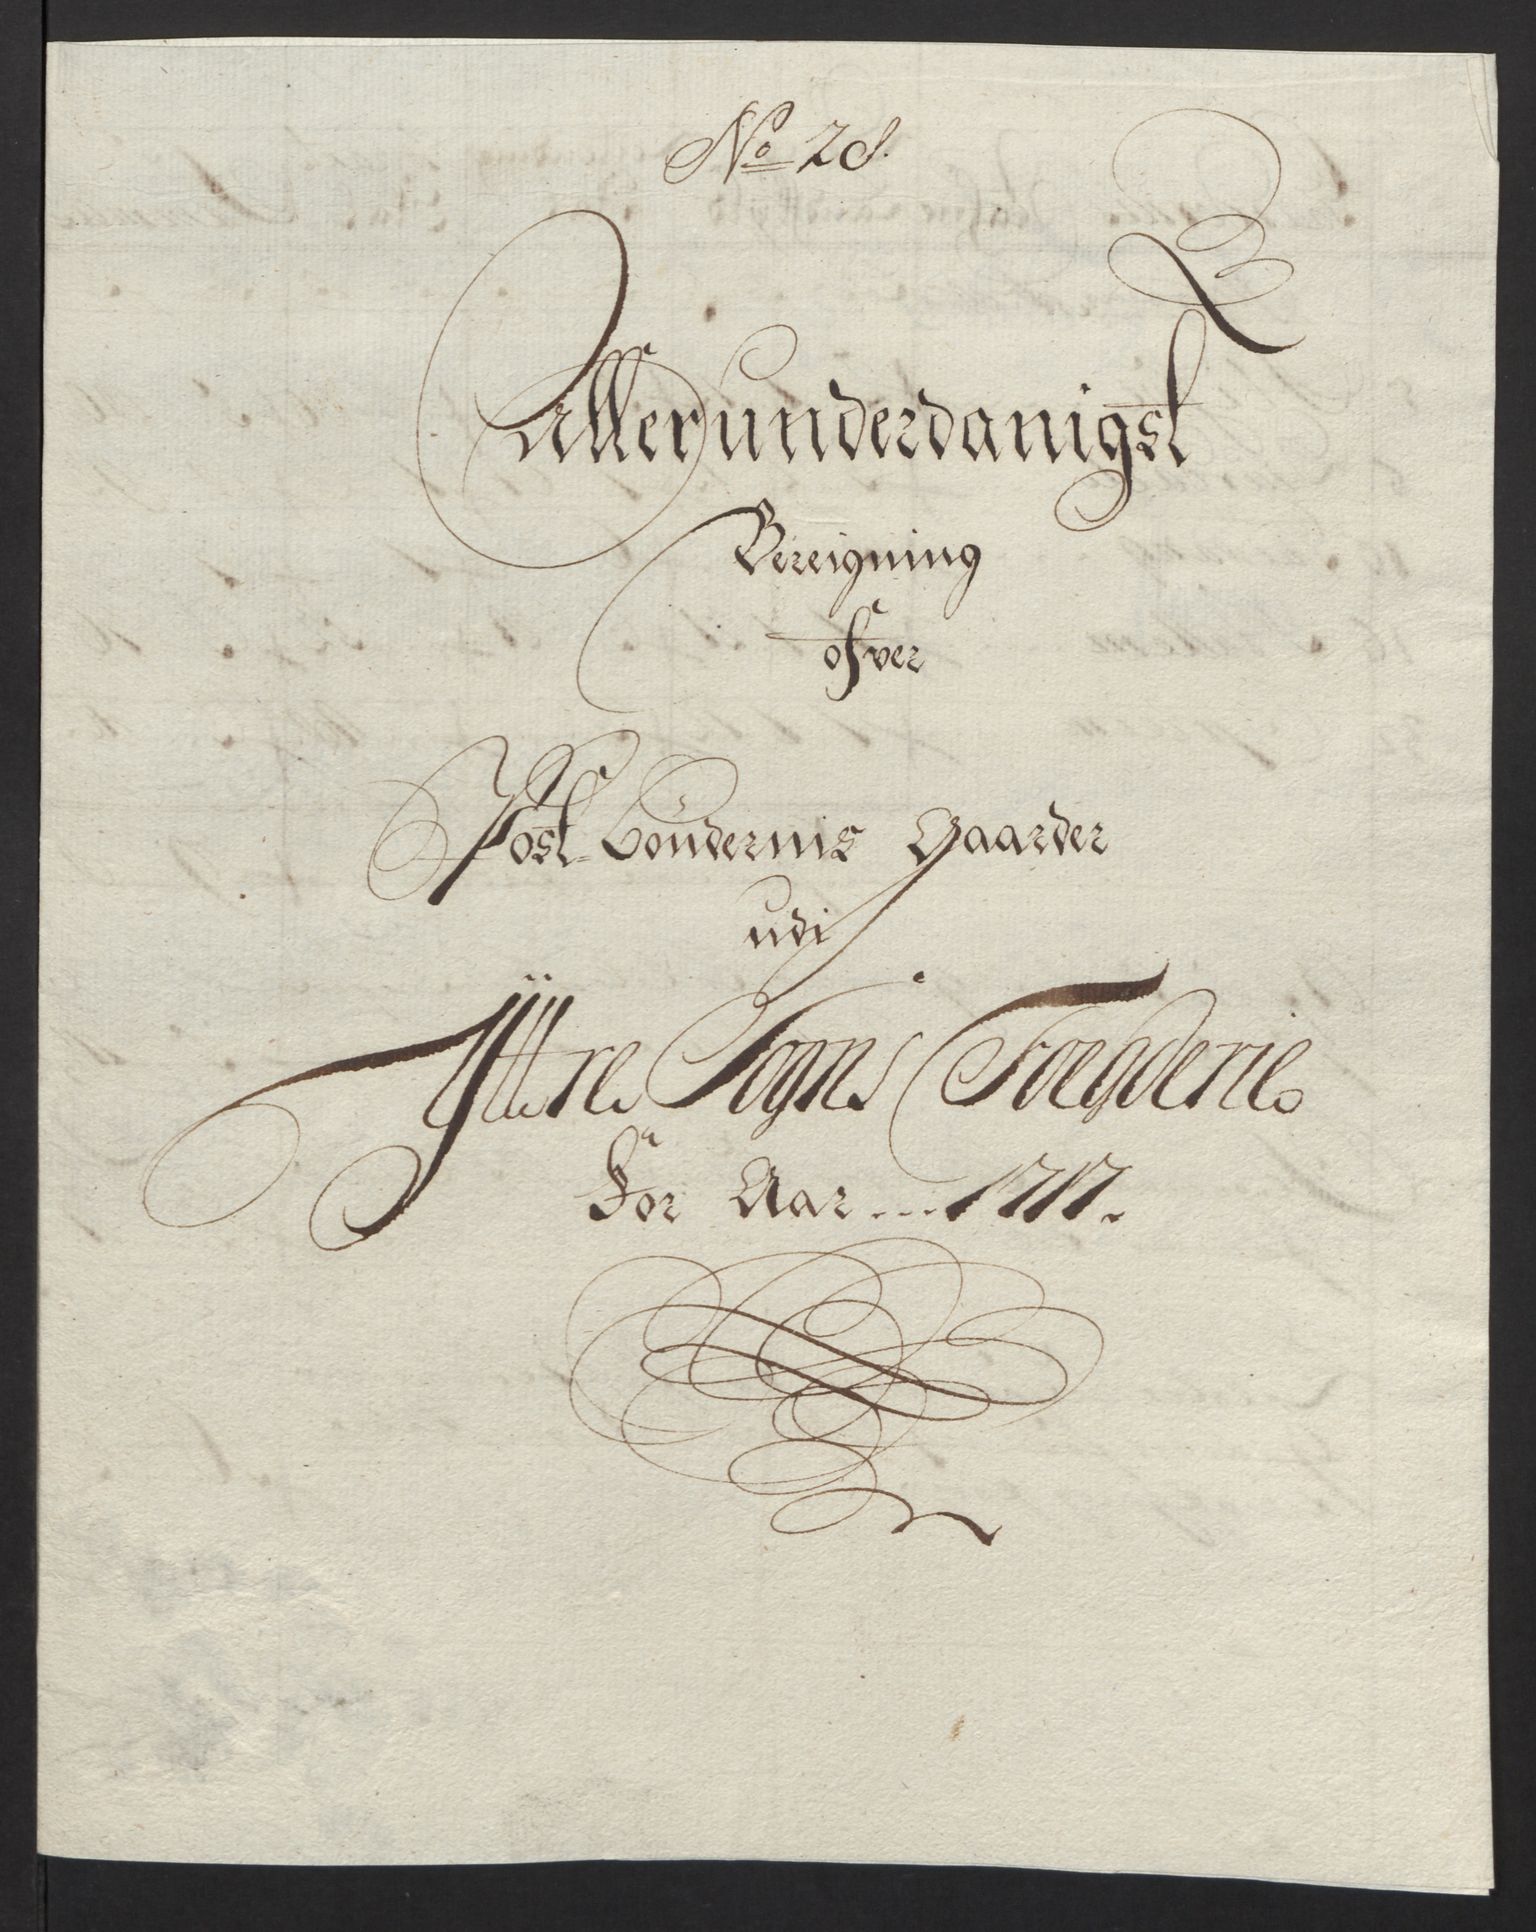 No 28.
Allerunderdanigst
Bereigning
ofver
Post-böndernis Gaarder
udi
Ÿttre Sogns Foegderie
For Aar ... 1717.